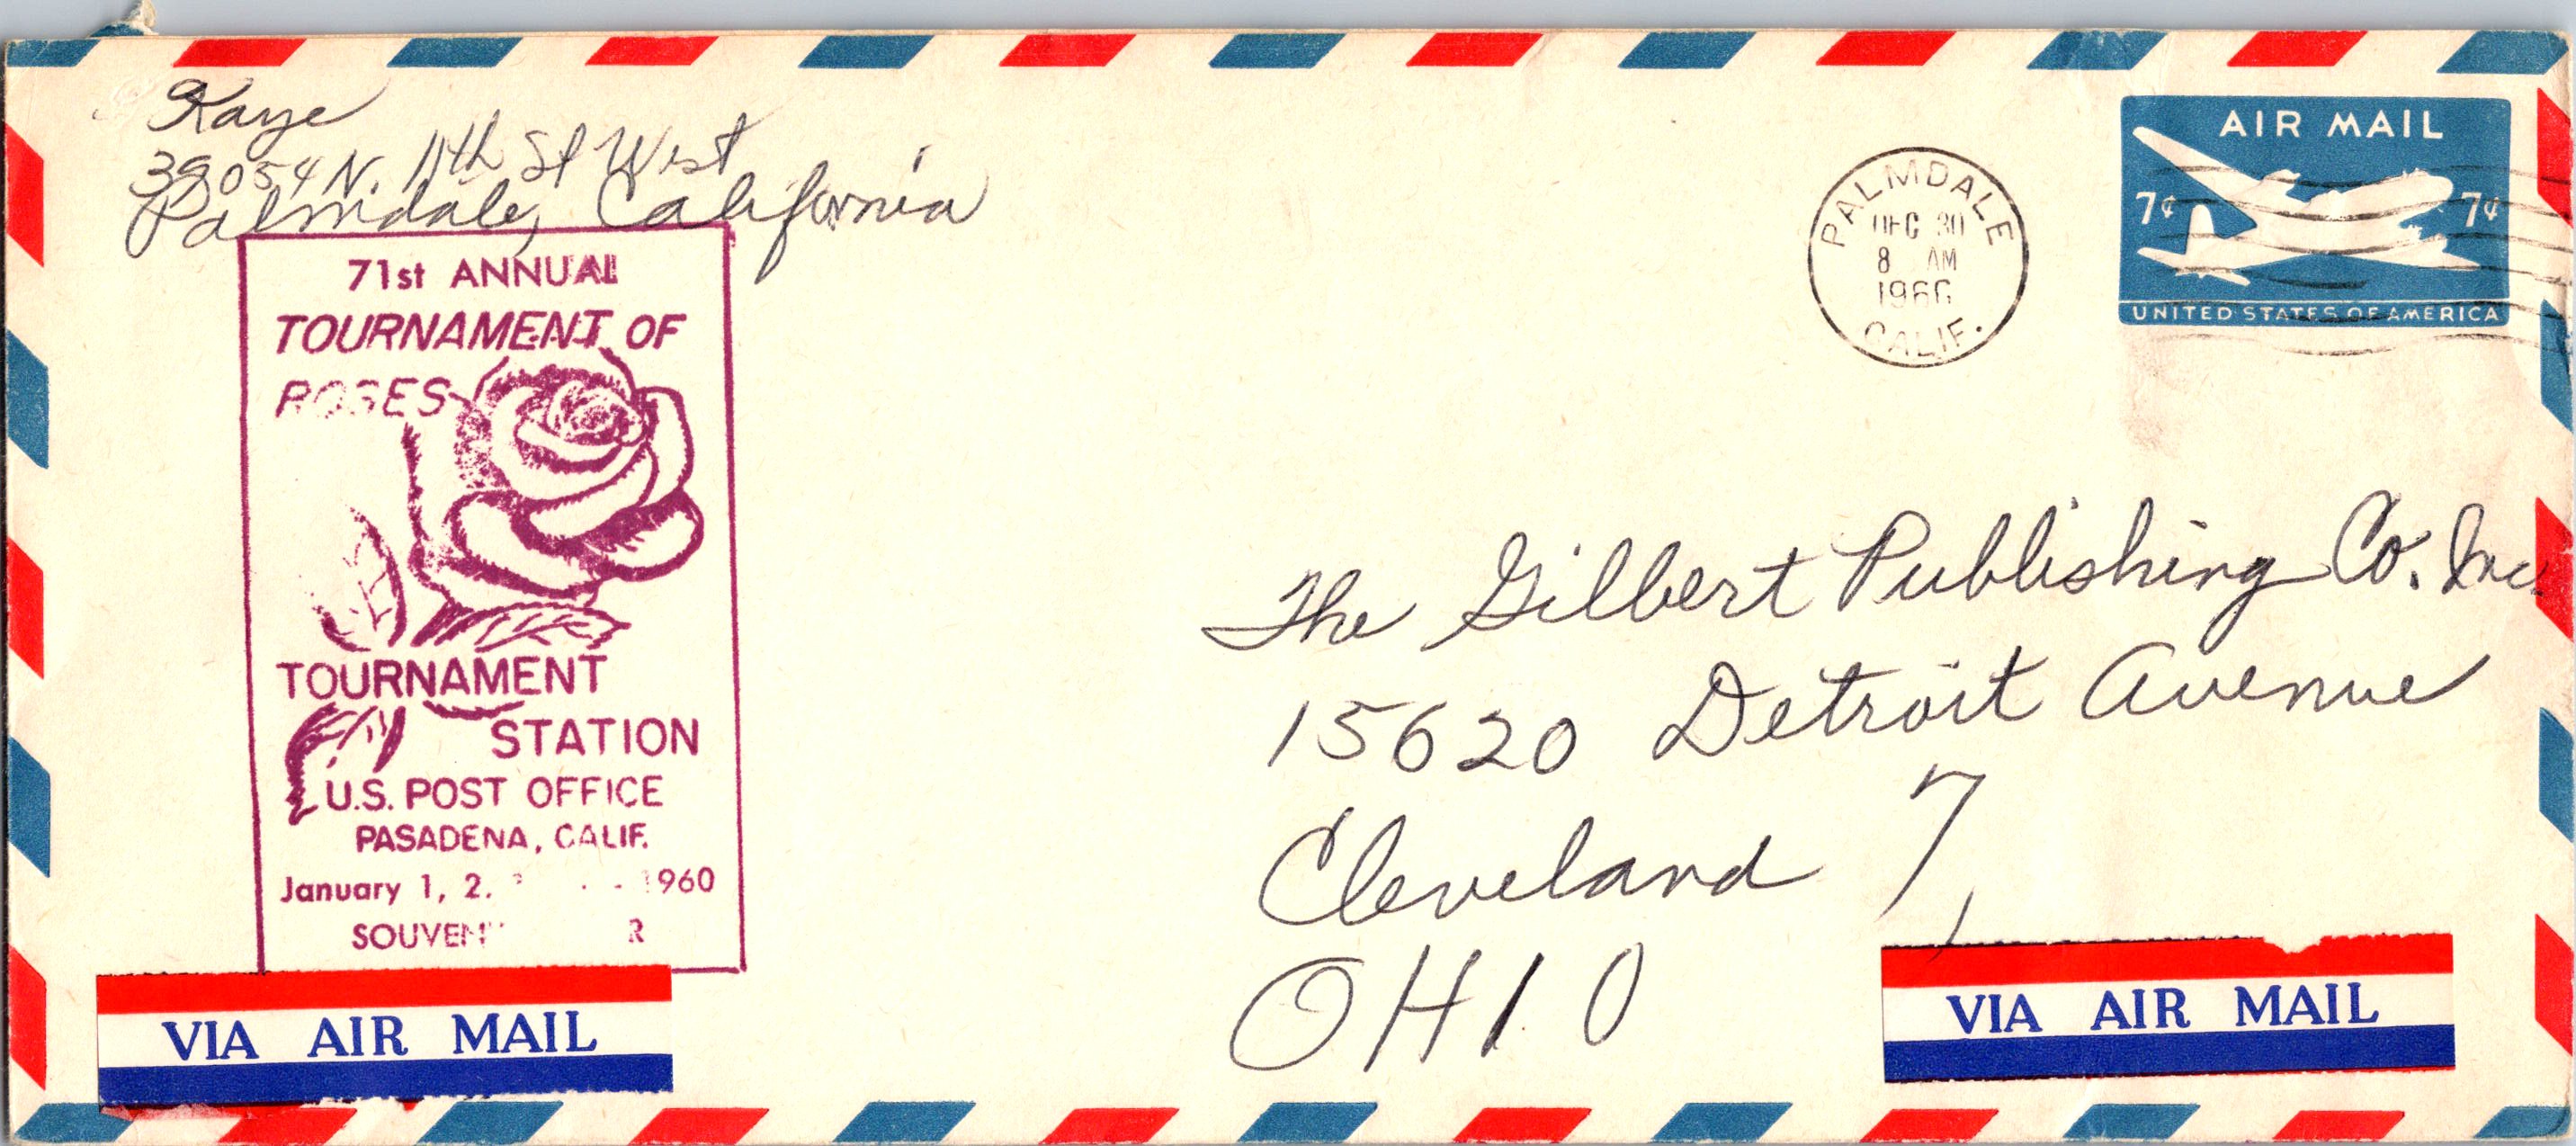 Kaye
38054 N. 11th St West
Palmdale, California
71st ANNUAL
TOURNAMENT OF
ROSES
TOURNAMENT
STATION
U.S. POST OFFICE
PASADENA, CALIF.
January 1, 2, 1960
VIA AIR MAIL
PALMDALE
DEC 30
8 AM
1960
CALIF.
AIR MAIL
7¢ 7¢
UNITED STATES OF AMERICA
The Gilbert Publishing Co. Inc.
15620 Detroit Avenue
Cleveland 7,
OHIO
VIA AIR MAIL